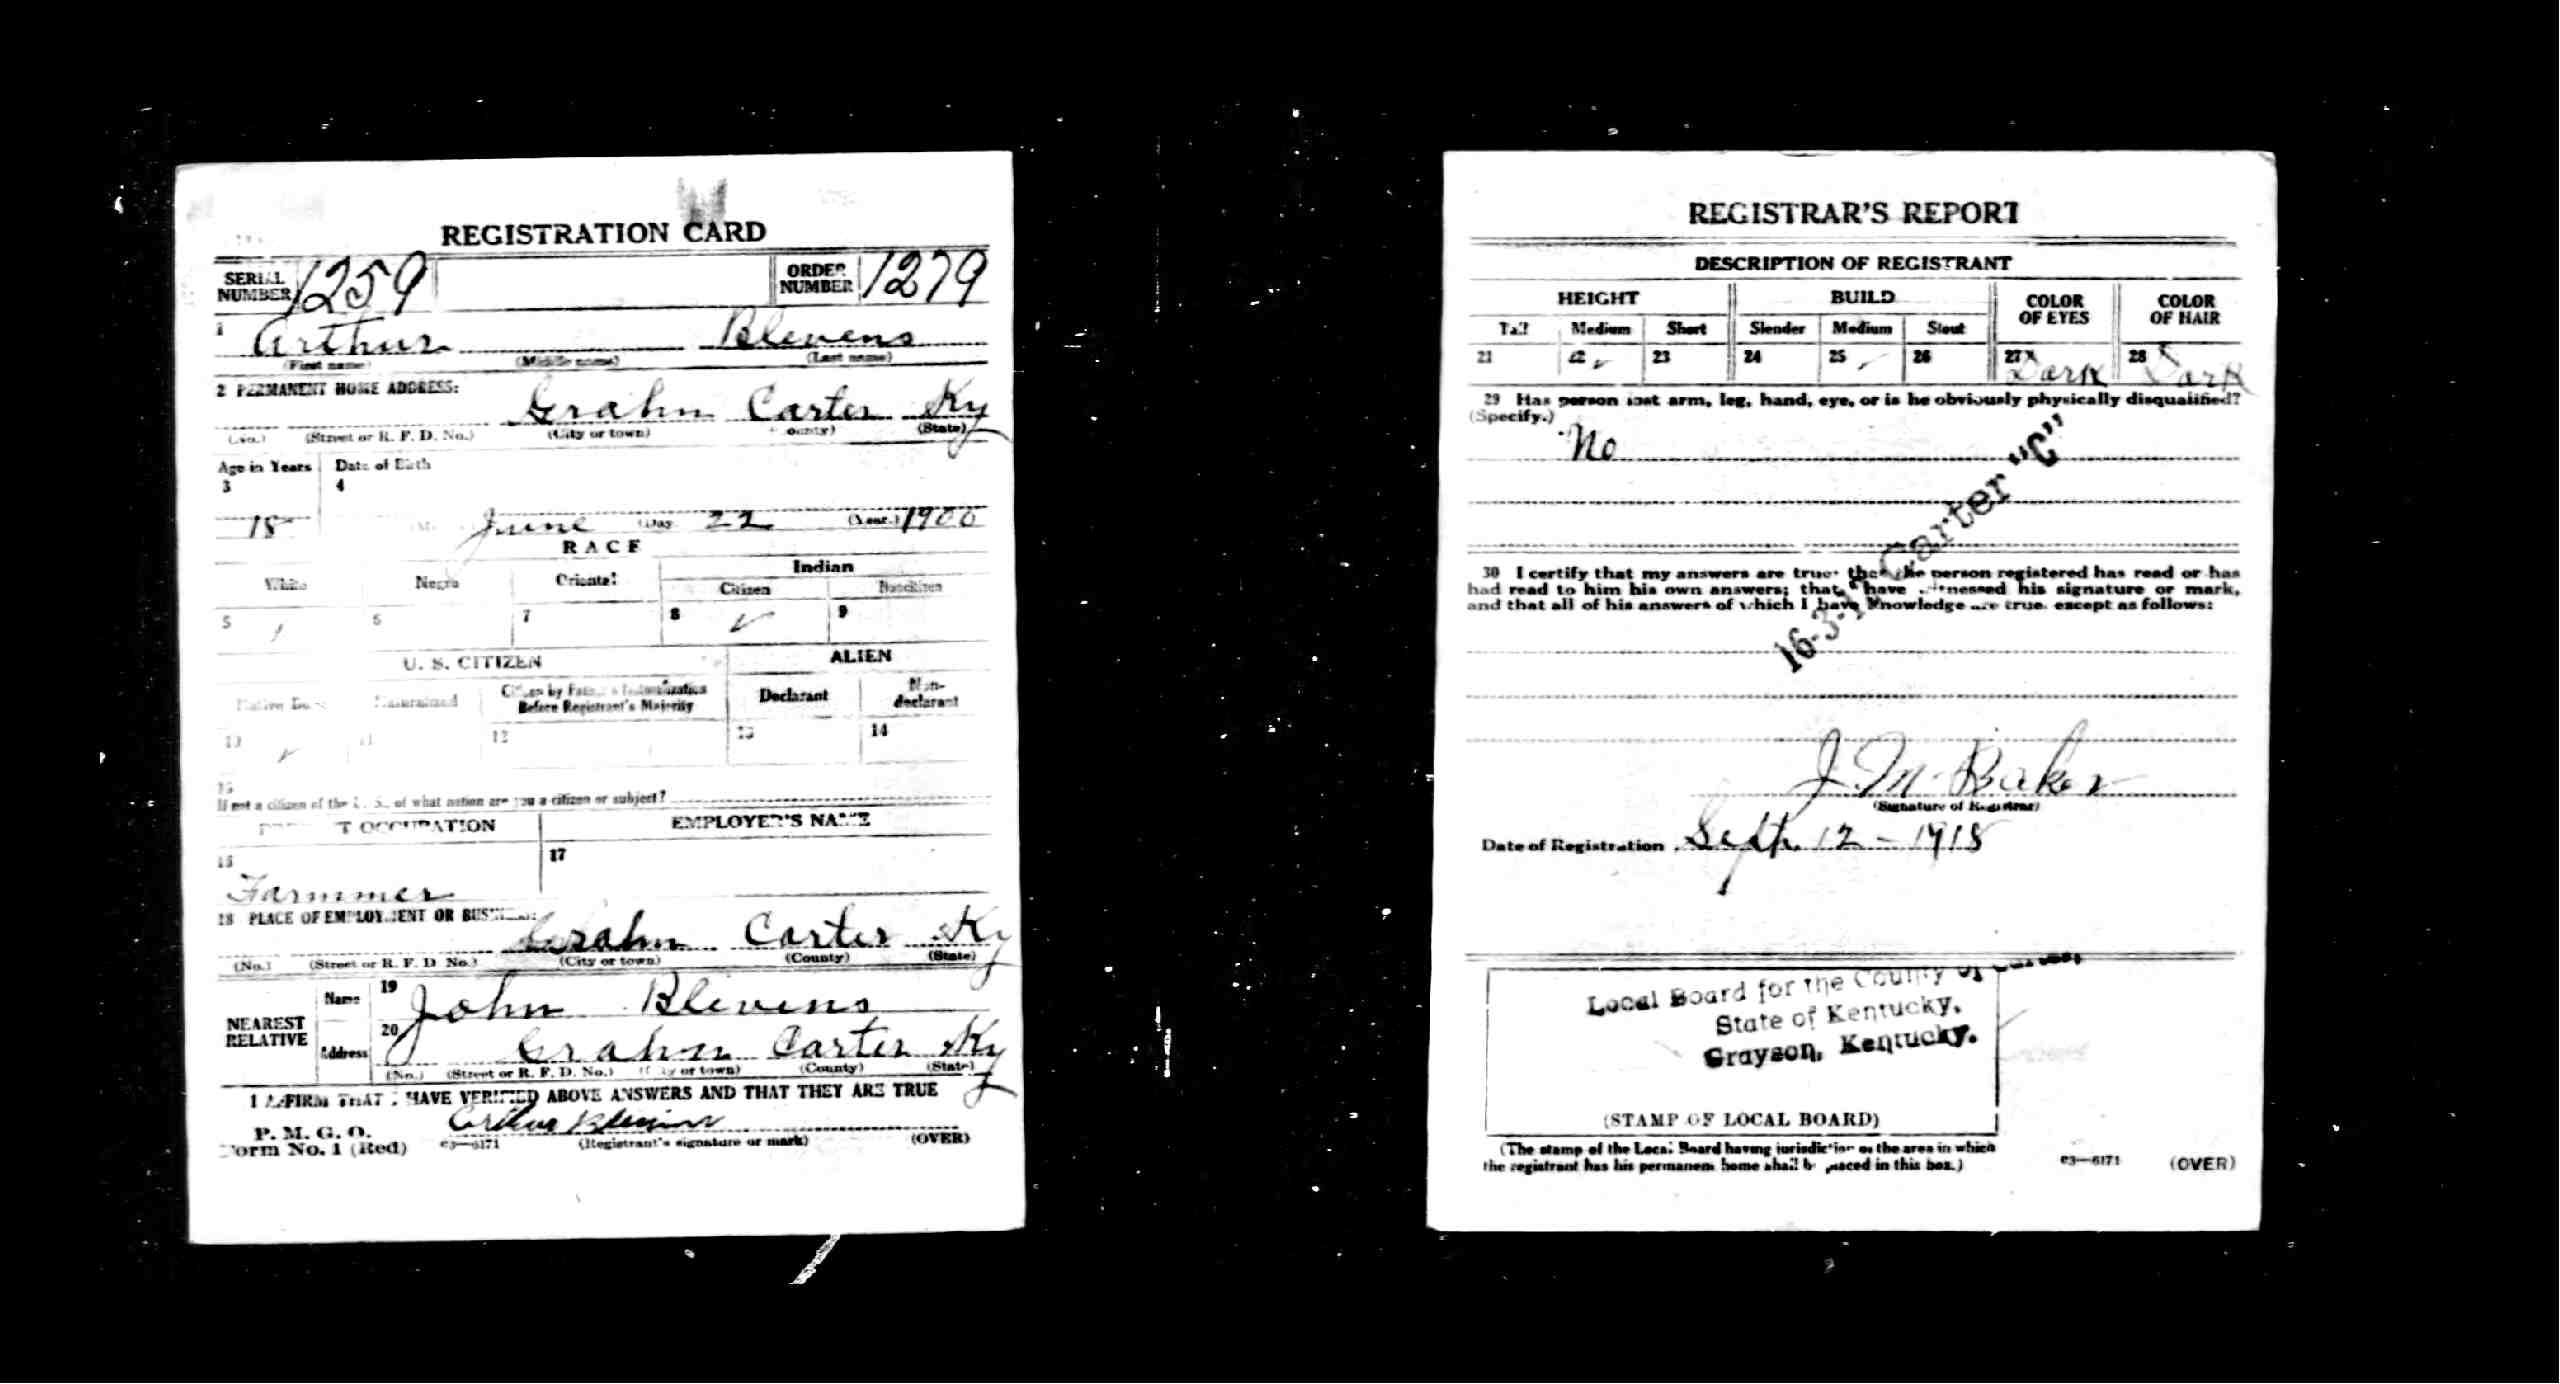 REGISTRATION CARD
SERIAL NUMBER 1259 ORDER NUMBER 1279
1 Arthur Blevens
(First name) (Middle name) (Last name)
2 PERMANENT HOME ADDRESS:
Grahn Carter Ky
(No.) (Street or R. F. D. No.) (City or town) (County) (State)
Age in Years Date of Birth
3 4
18 June (Day 22 (Year.) 1900
RACE
White Negro Oriental Indian
Citizen Noncitizen
5 6 7 8 ✓ 9
U. S. CITIZEN ALIEN
Native Born Naturalized Citizen by Father's Naturalization Before Registrant's Majority Declarant Non-declarant
10 ✓ 11 12 13 14
15
If not a citizen of the U. S., of what nation are you a citizen or subject?
PRESENT OCCUPATION EMPLOYER'S NAME
16 17
Farmmer
18 PLACE OF EMPLOYMENT OR BUSINESS:
Grahn Carter Ky
(No.) (Street or R. F. D. No.) (City or town) (County) (State)
NEAREST RELATIVE
Name 19 John Blevens
Address 20 Grahn Carter Ky
(No.) (Street or R. F. D. No.) (City or town) (County) (State)
I AFFIRM THAT I HAVE VERIFIED ABOVE ANSWERS AND THAT THEY ARE TRUE
P. M. G. O. Arthur Blevins
Form No. 1 (Red) 03—6171 (Registrant's signature or mark) (OVER)
REGISTRAR'S REPORT
DESCRIPTION OF REGISTRANT
HEIGHT BUILD COLOR OF EYES COLOR OF HAIR
Tall Medium Short Slender Medium Stout
21 22 ✓ 23 24 25 ✓ 26 27 Dark 28 Dark
29 Has person lost arm, leg, hand, eye, or is he obviously physically disqualified?
(Specify.)
No
16-3-17 Carter "C"
30 I certify that my answers are true; that the person registered has read or has
had read to him his own answers; that I have witnessed his signature or mark,
and that all of his answers of which I have knowledge are true, except as follows:
J. M. Baker
(Signature of Registrar)
Date of Registration Sept. 12 - 1918
Local Board for the County of Carter,
State of Kentucky.
Grayson, Kentucky.
(STAMP OF LOCAL BOARD)
(The stamp of the Local Board having jurisdiction of the area in which
the registrant has his permanent home shall be placed in this box.)
03—6171 (OVER)